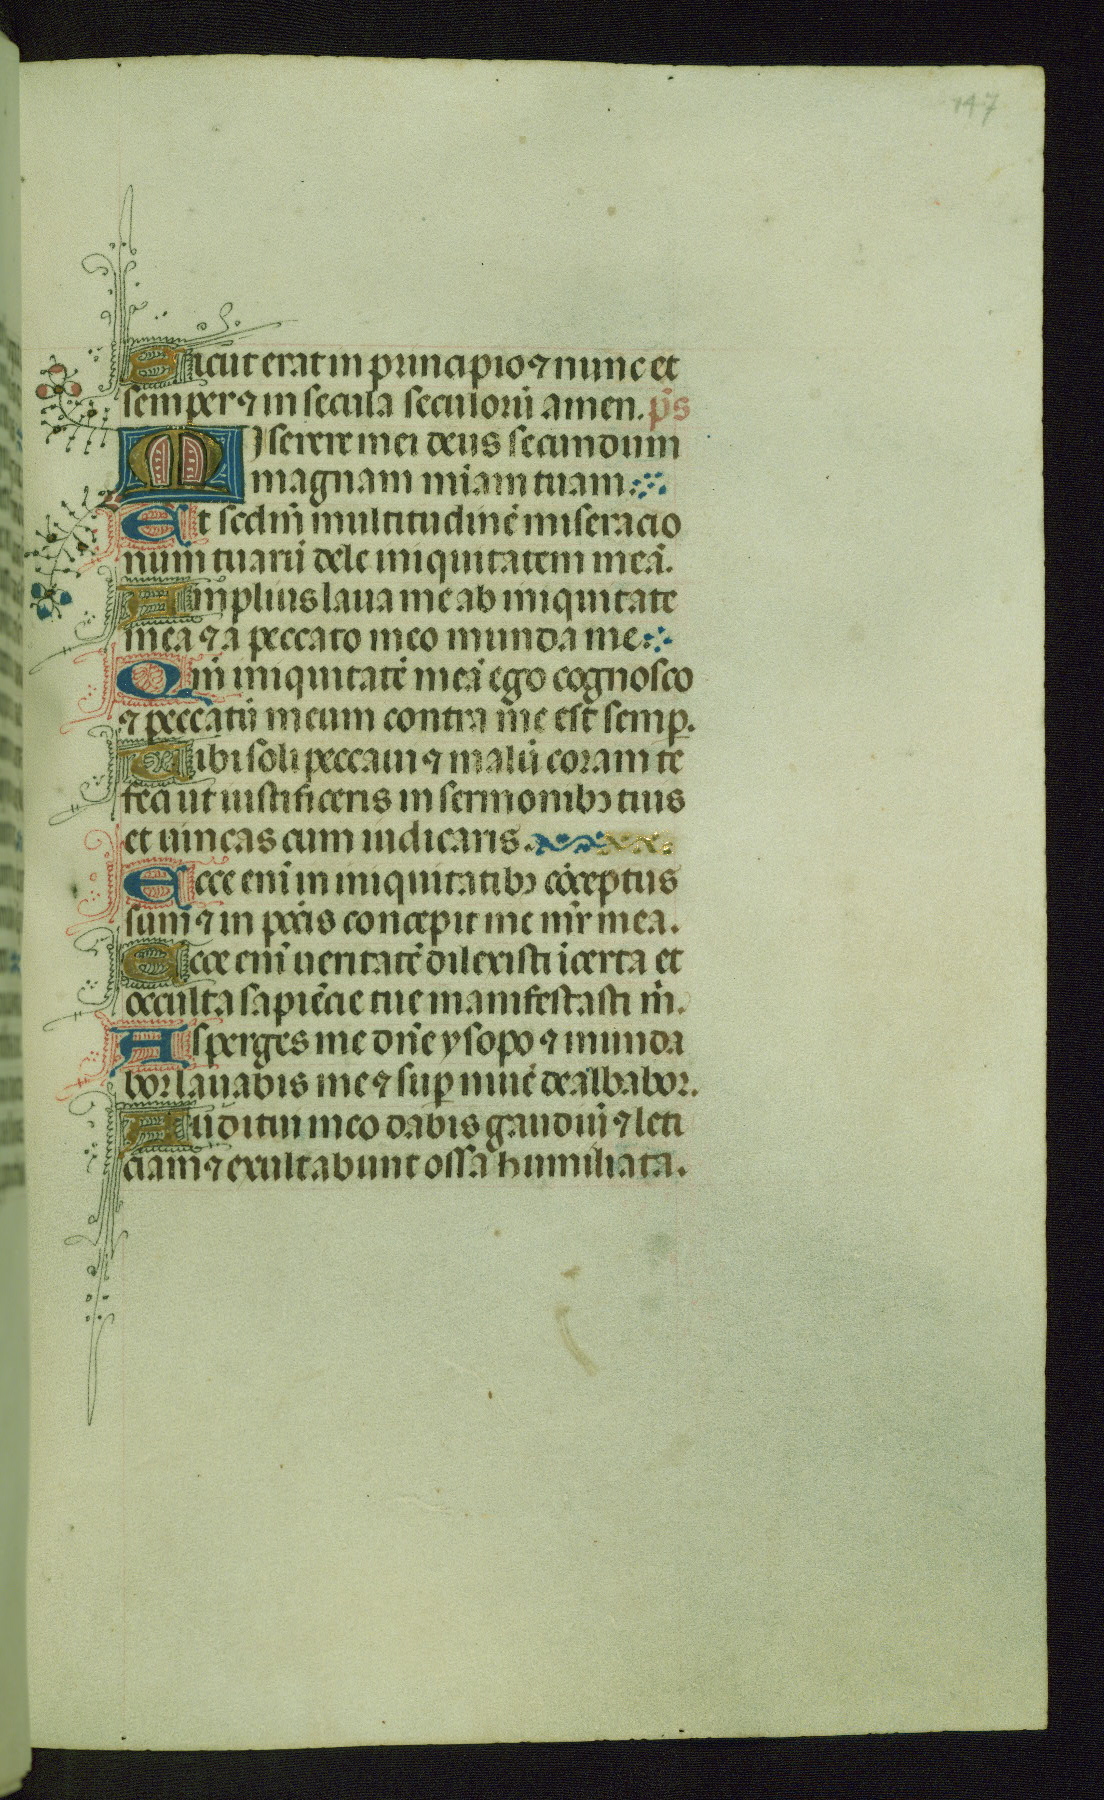 147
Sicut erat in principio ⁊ nunc et
semper ⁊ in secula seculoru᷑ amen. p̃s
MIserere mei deus secundum
magnam mi᷑am tuam
Et scdm̃ multitudinẽ miseracio
num tuarũ dele iniquitatem meã.
Amplius laua me ab iniquitate
mea ⁊ a peccato meo munda me
Qm̃ iniquitatẽ meã ego cognosco
⁊ peccatũ meum contra me est semp̱.
Tibi soli peccaui ⁊ malũ coram te
feci ut iustificeris in sermonibꝫ tuis
et uincas cum iudicaris.
Ecce eni᷑ in iniquitatibꝫ cõceptus
sum ⁊ in pcc̃is concepit me mr̃ mea.
Ecce eni᷑ ueritatẽ dilexisti ĩcerta et
occulta sapiẽcie tue manifestasti m̃.
Asperges me dñe ysopo ⁊ munda
bor lauabis me ⁊ sup̱ niuẽ dealbabor.
Auditui meo dabis gaudiũ ⁊ leti
ciam ⁊ exultabunt ossa humiliata.